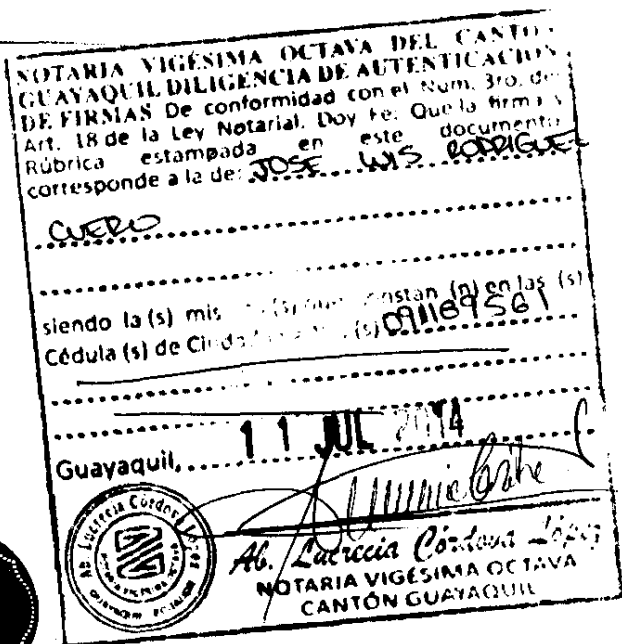 NOTARIA VIGÉSIMA OCTAVA DEL CANTÓN
GUAYAQUIL DILIGENCIA DE AUTENTICACION
DE FIRMAS De conformidad con el Num. 3ro. de
Art. 18 de la Ley Notarial. Doy Fe: Que la firma y
Rúbrica estampada en este documento
corresponde a la de: JOSE LUIS RODRIGUEZ
CUERO
siendo la (s) mis (s) que constan (n) en las (s)
Cédula (s) de Ciuda (s) 091189561
11 JUL 2014
Guayaquil,
Ab. Lucrecia Córdova López
NOTARIA VIGÉSIMA OCTAVA
CANTÓN GUAYAQUIL
Ab. Lucrecia Córdova López
GUAYAQUIL ECUADOR